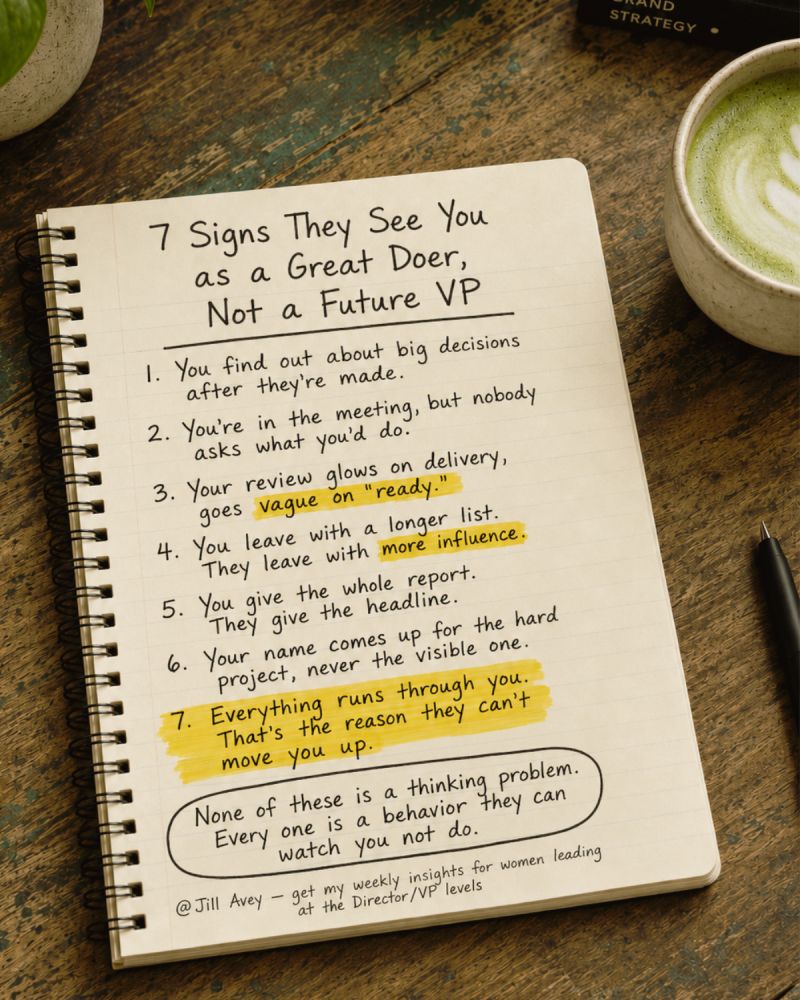 GRAND
STRATEGY
7 Signs They See You
as a Great Doer,
Not a Future VP
1. You find out about big decisions
after they're made.
2. You're in the meeting, but nobody
asks what you'd do.
3. Your review glows on delivery,
goes vague on "ready."
4. You leave with a longer list.
They leave with more influence.
5. You give the whole report.
They give the headline.
6. Your name comes up for the hard
project, never the visible one.
7. Everything runs through you.
That's the reason they can't
move you up.
None of these is a thinking problem.
Every one is a behavior they can
watch you not do.
@Jill Avey — get my weekly insights for women leading
at the Director/VP levels